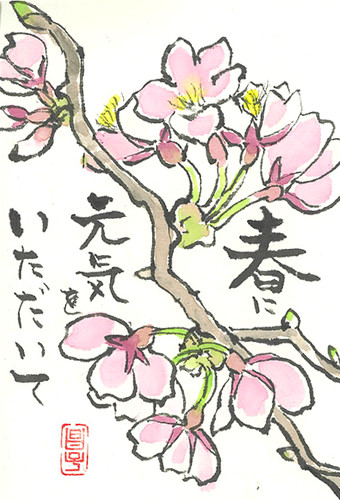 春に
元気を
いただいて